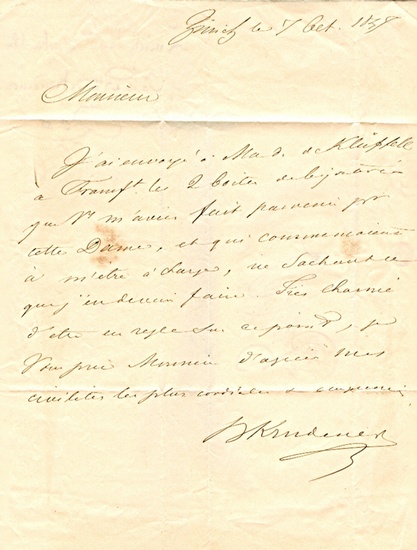 Zürich le 7 Oct. 1858
Monsieur
J'ai envoyé à Mad. de Klüpfell
à Francft. les 2 boites de bijouterie
que Vs m'aviez fait parvenir pr
cette Dame, et qui commencaient
à m'être à charge, ne Sachant ce
que j'en devais faire. Très charmé
d'etre en regle sur ce point, je
Vous prie Monsieur d'agréer mes
civilités les plus cordiales &
BKrudener